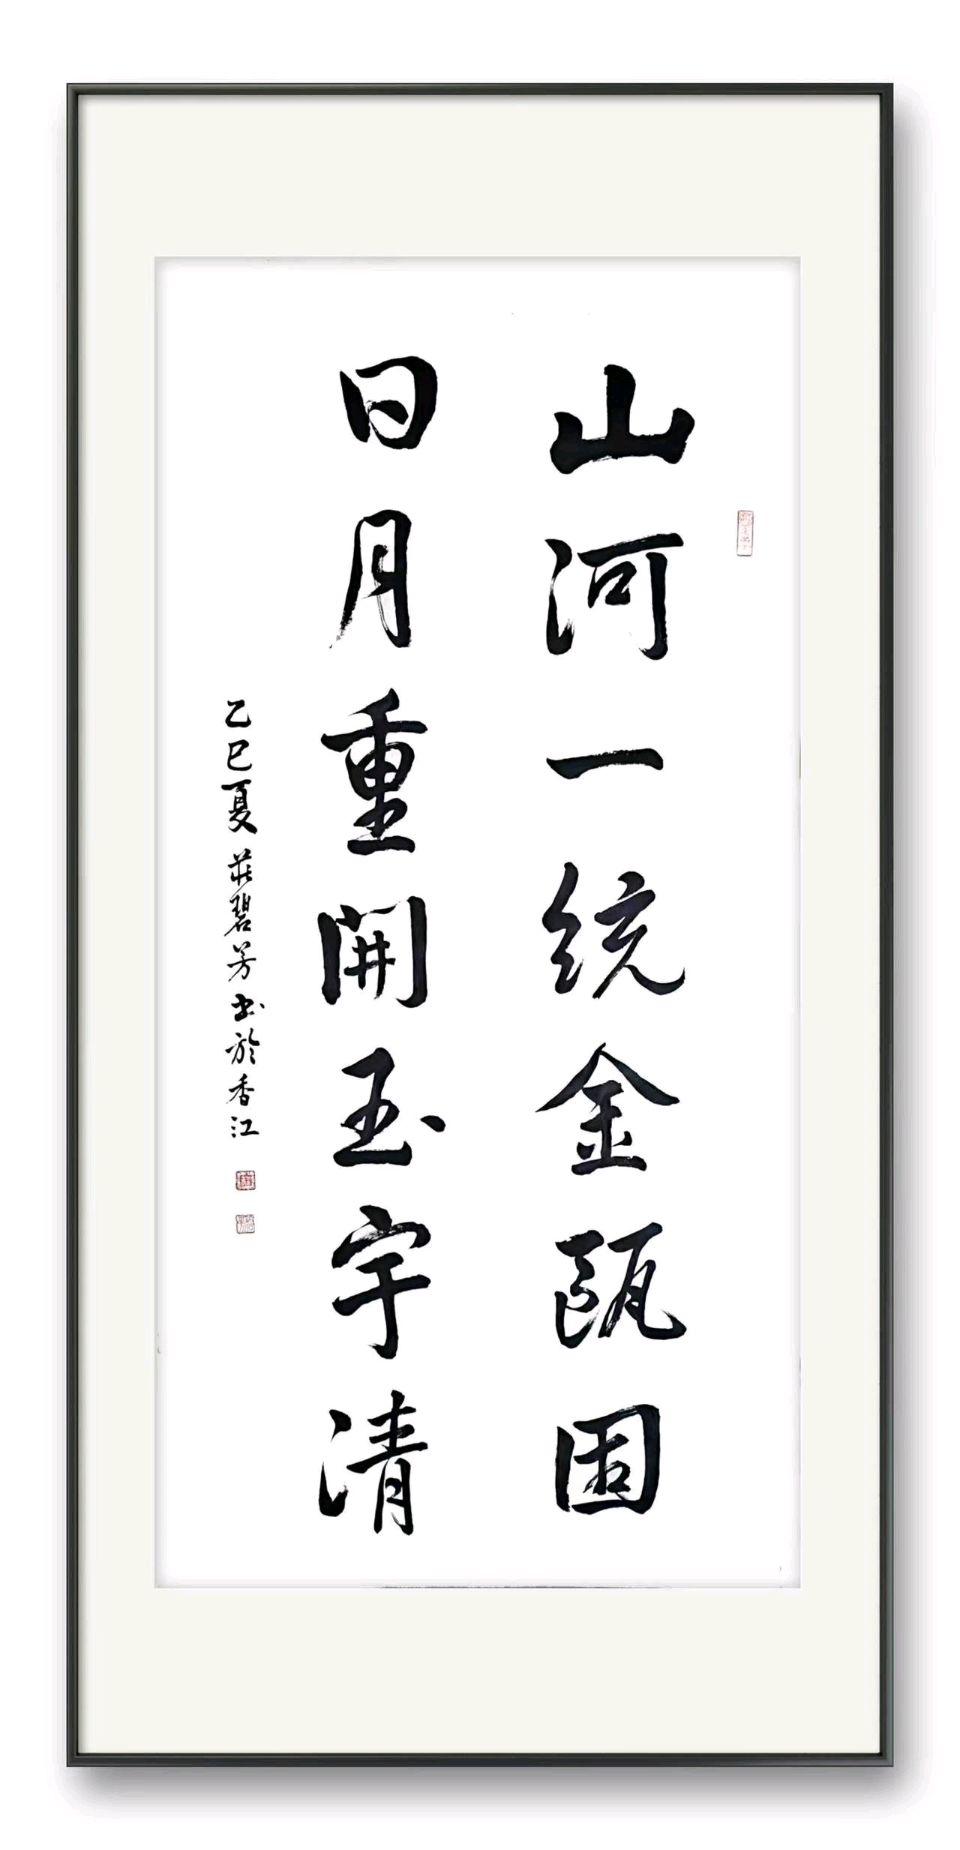 山河一统金瓯固
日月重開玉宇清
乙巳夏莊碧芳书於香江